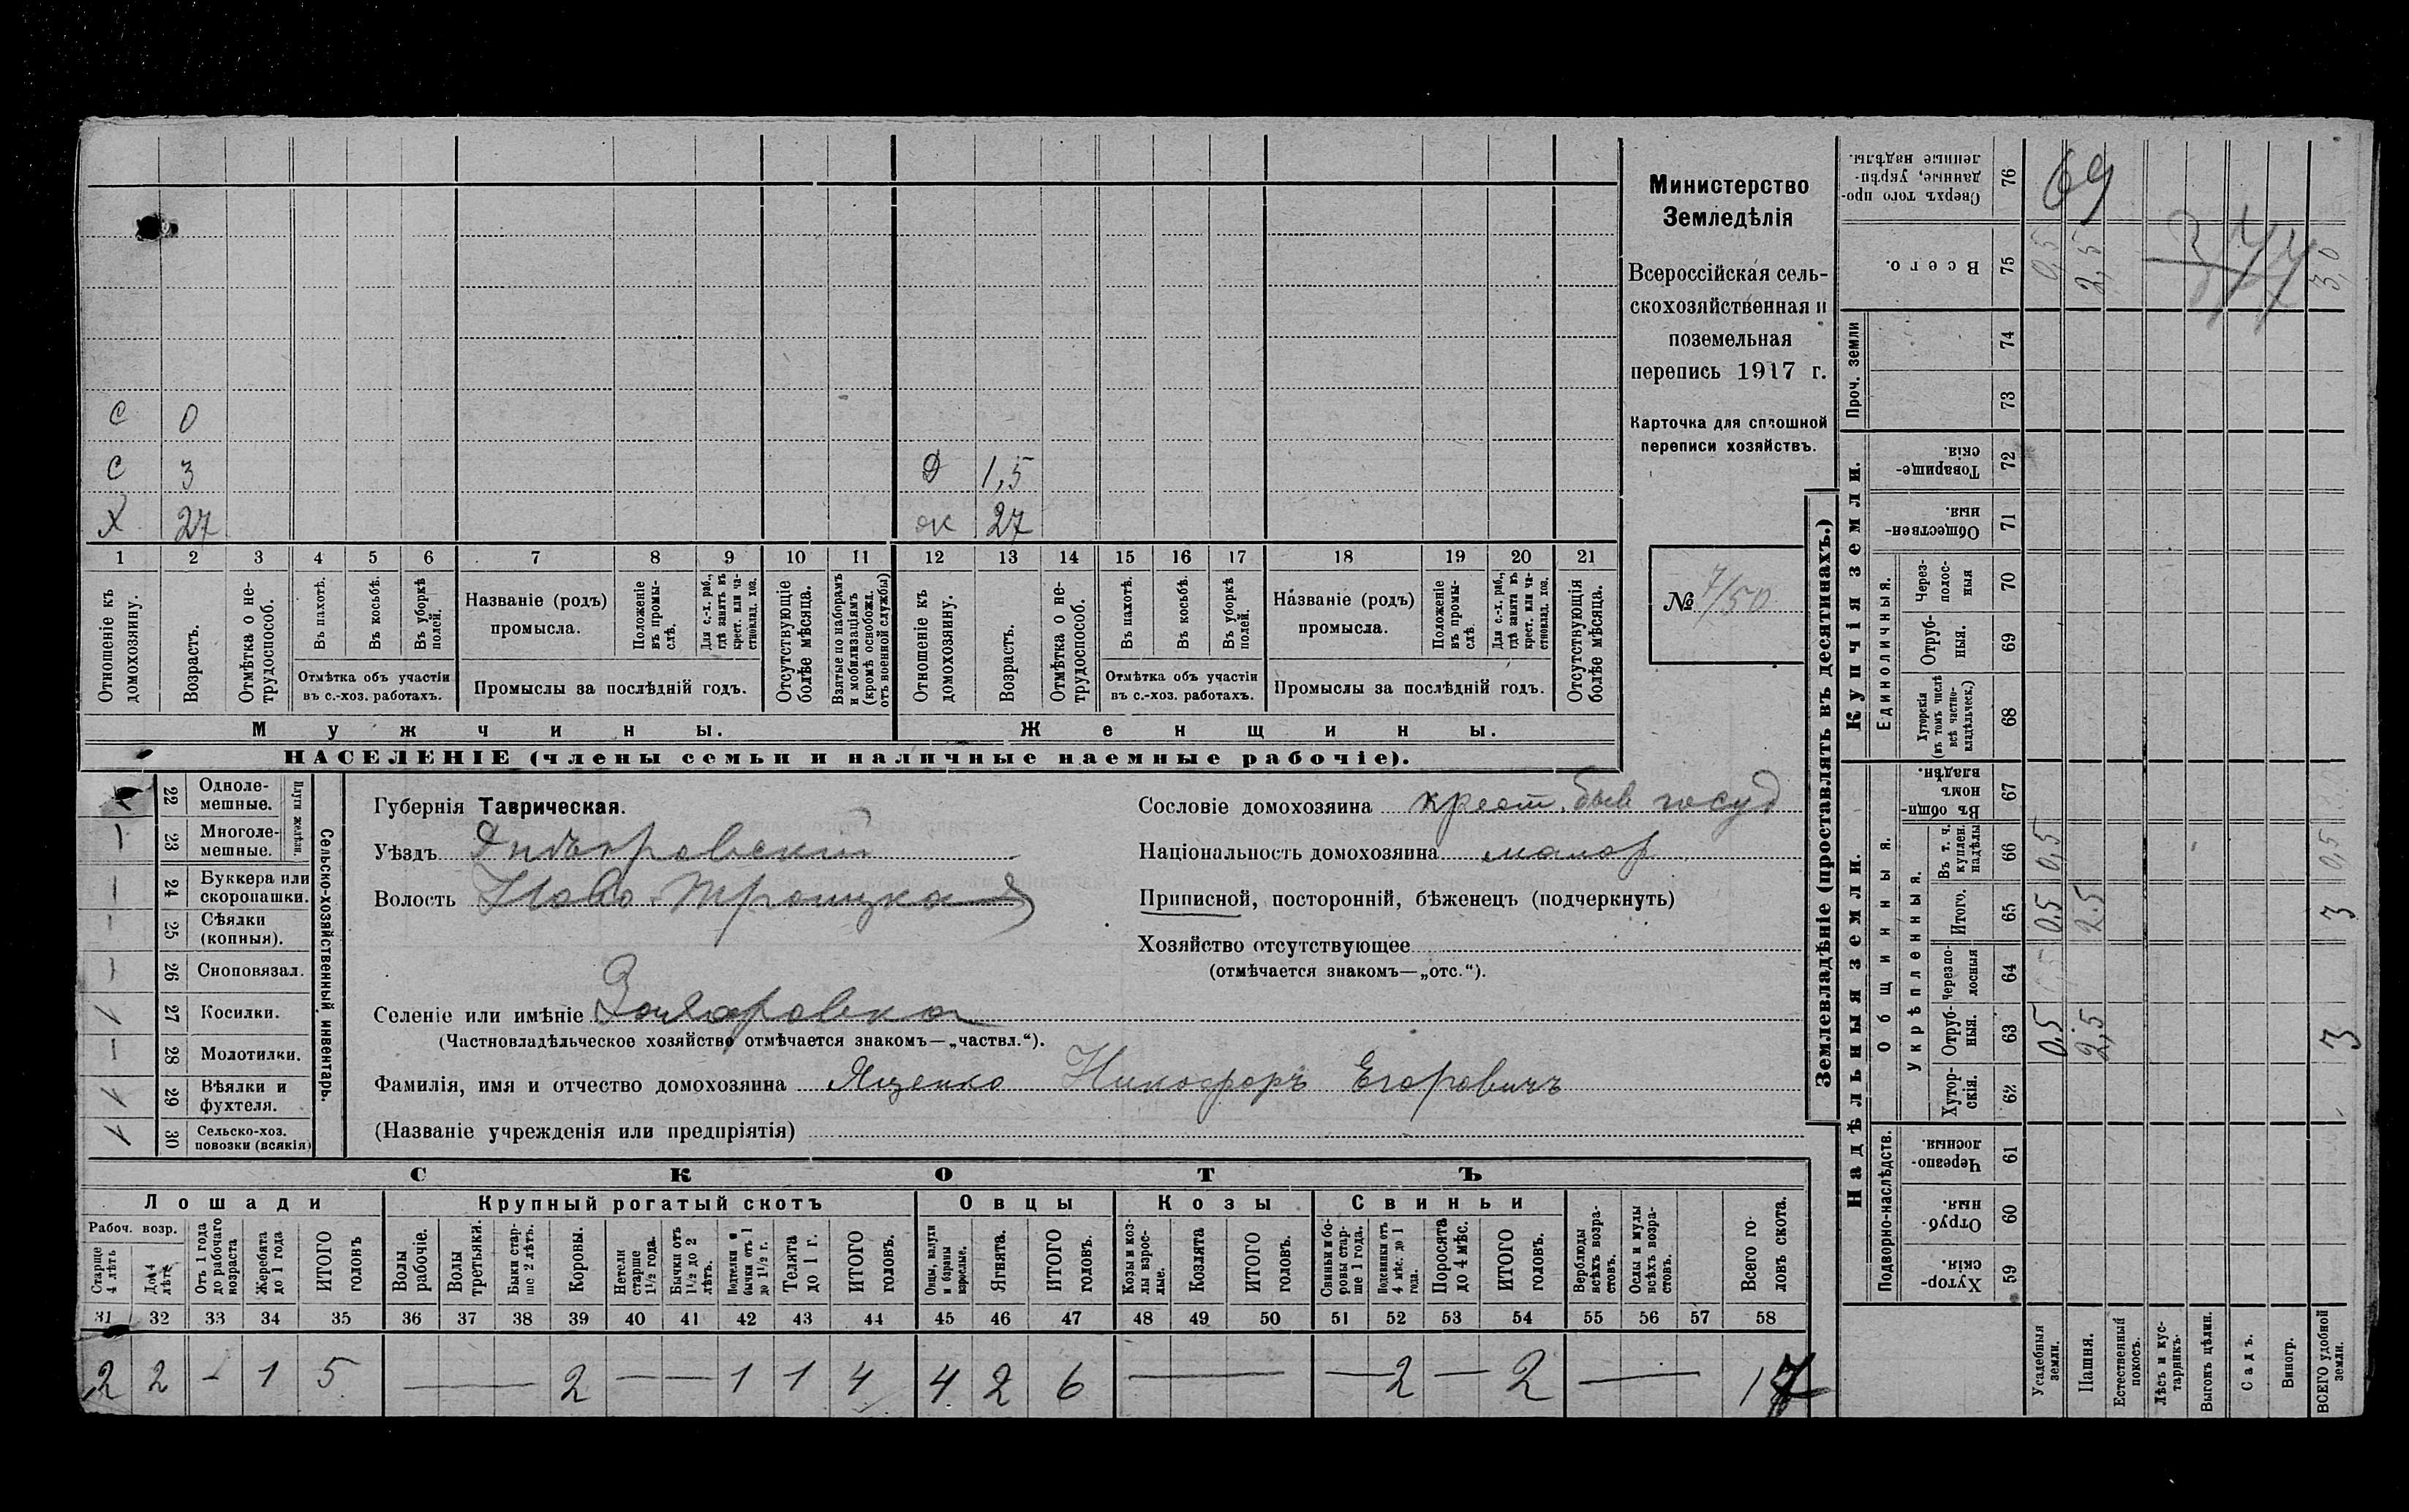 С 0
С 3 Д 1,5
Х 27 ж 27
1 2 3 4 5 6 7 8 9 10 11 12 13 14 15 16 17 18 19 20 21
Отношеніе къ домохозяину.
Возрастъ.
Отмѣтка о не-
трудоспособ.
Въ пахотѣ.
Въ косьбѣ.
Въ уборкѣ полей.
Отмѣтка объ участіи
въ с.-хоз. работахъ.
Названіе (родъ)
промысла.
Положеніе
въ промы-
слѣ.
Для с.-х. раб.,
гдѣ занятъ въ
крест. или ча-
стновлад. хоз.
Промыслы за послѣдній годъ.
Отсутствующіе
болѣе мѣсяца.
Взятые по наборамъ
и мобилизаціямъ
(кромѣ освобожд.
отъ военной службы)
Отношеніе къ
домохозяину.
Возрастъ.
Отмѣтка о не-
трудоспособ.
Въ пахотѣ.
Въ косьбѣ.
Въ уборкѣ
полей.
Отмѣтка объ участіи
въ с.-хоз. работахъ.
Названіе (родъ)
промысла.
Положеніе
въ промы-
слѣ.
Для с.-х. раб.,
гдѣ занята въ
крест. или ча-
стновлад. хоз.
Промыслы за послѣдній годъ.
Отсутствующія
болѣе мѣсяца.
Мужчины. Женщины.
НАСЕЛЕНІЕ (члены семьи и наличные наемные рабочіе).
Министерство
Земледѣлія
Всероссійская сель-
скохозяйственная и
поземельная
перепись 1917 г.
Карточка для сплошной
переписи хозяйствъ.
№ 7/50
22 Одноле-
мешные.
1 23 Многоле-
мешные.
Плуги желѣзн.
24 Буккера или
скоропашки.
25 Сѣялки
(конныя).
26 Сноповязал.
27 Косилки.
28 Молотилки.
29 Вѣялки и
фухтеля.
30 Сельско-хоз.
повозки (всякія)
Сельско-хозяйственный инвентарь.
Губернія Таврическая.
Уѣздъ Днѣпровскій
Волость Ново-Троицкая
Селеніе или имѣніе Захаровка
(Частновладѣльческое хозяйство отмѣчается знакомъ—„частвл.“).
Фамилія, имя и отчество домохозяина Яценко Никифоръ Егоровичъ
(Названіе учрежденія или предпріятія)
Сословіе домохозяина крест. быв госуд
Національность домохозяина малор
Приписной, посторонній, бѣженецъ (подчеркнуть)
Хозяйство отсутствующее
(отмѣчается знакомъ—„отс.“).
СКОТЪ
Лошади Крупный рогатый скотъ Овцы Козы Свиньи
Рабоч. возр.
Старше
4 лѣтъ
До 4
лѣтъ
Отъ 1 года
до рабочаго
возраста
Жеребята
до 1 года
ИТОГО
головъ
Волы
рабочіе.
Волы
третьяки.
Быки стар-
ше 2 лѣтъ.
Коровы.
Нетели
старше
1½ года.
Бычки отъ
1½ до 2
лѣтъ.
Подтелки и
бычки отъ 1
до 1½ г.
Телята
до 1 г.
ИТОГО
головъ.
Овцы, валухи
и бараны
взрослые.
Ягнята.
ИТОГО
головъ.
Козы и коз-
лы взрос-
лые.
Козлята
ИТОГО
головъ.
Свиньи и бо-
ровы стар-
ше 1 года.
Подсвинки отъ
4 мѣс. до 1
года.
Поросята
до 4 мѣс.
ИТОГО
головъ.
Верблюды
всѣхъ возра-
стовъ.
Ослы и мулы
всѣхъ возра-
стовъ.
Всего го-
ловъ скота.
31 32 33 34 35 36 37 38 39 40 41 42 43 44 45 46 47 48 49 50 51 52 53 54 55 56 57 58
2 2 - 1 5 — 2 — — 1 1 4 4 2 6 — — 2 — 2 — 17
Землевладѣніе (проставлять въ десятинахъ.)
Надѣльныя земли. Купчія земли. Проч. земли
Подворно-наслѣдств.
Общинныя.
Укрѣпленныя.
Единоличныя.
Сверхъ того про-
данные, укрѣп-
ленные надѣлы.
76 69
Всего.
75 0,5 2,5 3,0
74
73
Товарище-
скія.
72
Обществен-
ныя.
71
Через-
полос-
ныя
70
Отруб-
ныя.
69
Хуторскія
(въ томъ числѣ
всѣ частно-
владѣльческ.)
68
Въ общин-
номъ
владѣн.
67
Въ т. ч.
куплен.
надѣлы
66 0,5 0,5
Итого.
65 0,5 2,5 3
Черезпо-
лосныя
64
Отруб-
ныя.
63 0,5 2,5 3
Хутор-
скія.
62
Черезпо-
лосныя.
61
Отруб-
ныя.
60
Хутор-
скія.
59
Усадебныя
земли.
Пашня.
Естественный
покосъ.
Лѣсъ и кус-
тарникъ.
Выгонъ цѣлин.
Садъ.
Виногр.
ВСЕГО удобной
земли.